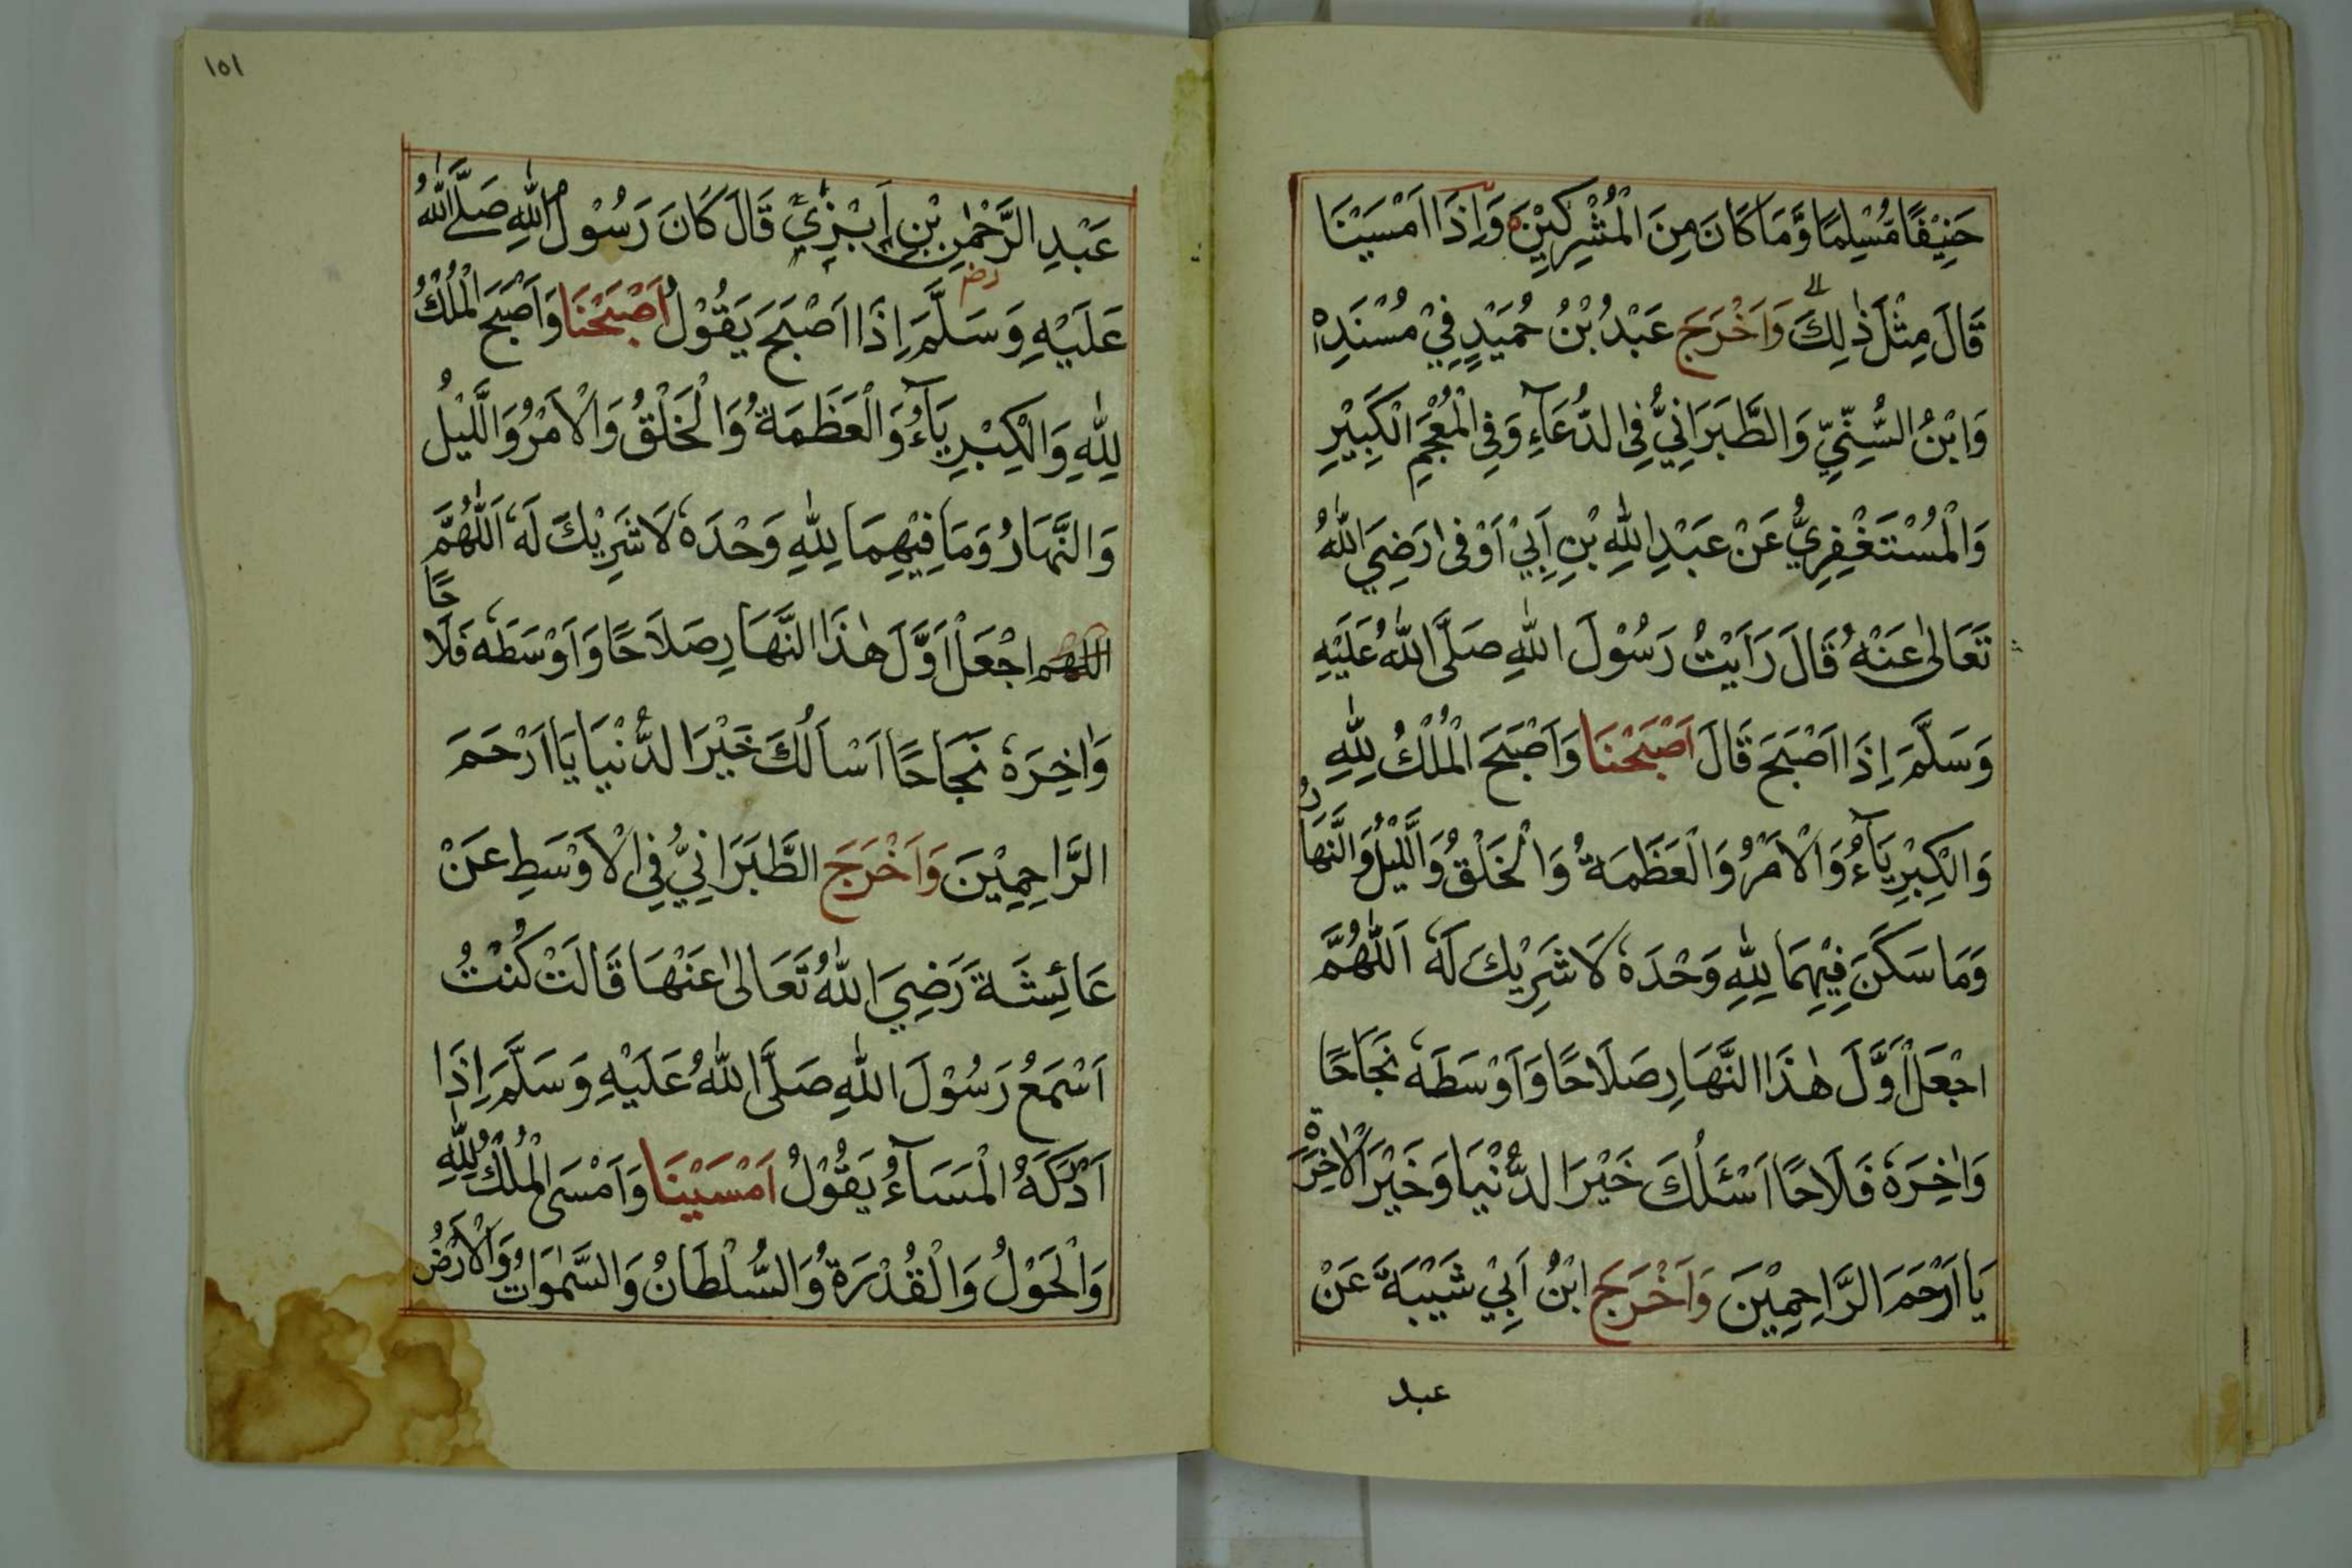 حَنِيْفًا مُّسْلِمًا وَّمَا كَانَ مِنَ الْمُشْرِكِيْنَ وَاِذَا اَمْسَيْنَا
قَالَ مِثْلَ ذٰلِكَ وَاَخْرَجَ عَبْدُ بْنُ حُمَيْدٍ فِيْ مُسْنَدِهٖ
وَابْنُ السُّنِّيِّ وَالطَّبَرَانِيُّ فِي الدُّعَآءِ وَفِي الْمُعْجَمِ الْكَبِيْرِ
وَالْمُسْتَغْفِرِيُّ عَنْ عَبْدِ اللّٰهِ بْنِ اَبِيْ اَوْفٰى رَضِيَ اللّٰهُ
تَعَالٰى عَنْهُ قَالَ رَاَيْتُ رَسُوْلَ اللّٰهِ صَلَّى اللّٰهُ عَلَيْهِ
وَسَلَّمَ اِذَا اَصْبَحَ قَالَ اَصْبَحْنَا وَاَصْبَحَ الْمُلْكُ لِلّٰهِ
وَالْكِبْرِيَآءُ وَالْاَمْرُ وَالْعَظَمَةُ وَالْخَلْقُ وَالَّيْلُ وَالنَّهَارُ
وَمَا سَكَنَ فِيْهِمَا لِلّٰهِ وَحْدَهٗ لَا شَرِيْكَ لَهٗ اَللّٰهُمَّ
اجْعَلْ اَوَّلَ هٰذَا النَّهَارِ صَلَاحًا وَاَوْسَطَهٗ نَجَاحًا
وَاٰخِرَهٗ فَلَاحًا اَسْئَلُكَ خَيْرَ الدُّنْيَا وَخَيْرَ الْاٰخِرَةِ
يَا اَرْحَمَ الرَّاحِمِيْنَ وَاَخْرَجَ ابْنُ اَبِيْ شَيْبَةَ عَنْ
عبد
١٥١
عَبْدِ الرَّحْمٰنِ بْنِ اَبْزٰي قَالَ كَانَ رَسُوْلُ اللّٰهِ صَلَّى اللّٰهُ
رض
عَلَيْهِ وَسَلَّمَ اِذَا اَصْبَحَ يَقُوْلُ اَصْبَحْنَا وَاَصْبَحَ الْمُلْكُ
لِلّٰهِ وَالْكِبْرِيَآءُ وَالْعَظَمَةُ وَالْخَلْقُ وَالْاَمْرُ وَالَّيْلُ
وَالنَّهَارُ وَمَا فِيْهِمَا لِلّٰهِ وَحْدَهٗ لَا شَرِيْكَ لَهٗ اَللّٰهُمَّ
اللهم اجْعَلْ اَوَّلَ هٰذَا النَّهَارِ صَلَاحًا وَاَوْسَطَهٗ فَلَاحًا
وَاٰخِرَهٗ نَجَاحًا اَسْاَلُكَ خَيْرَ الدُّنْيَا يَا اَرْحَمَ
الرَّاحِمِيْنَ وَاَخْرَجَ الطَّبَرَانِيُّ فِي الْاَوْسَطِ عَنْ
عَائِشَةَ رَضِيَ اللّٰهُ تَعَالٰى عَنْهَا قَالَتْ كُنْتُ
اَسْمَعُ رَسُوْلَ اللّٰهِ صَلَّى اللّٰهُ عَلَيْهِ وَسَلَّمَ اِذَا
اَدْرَكَهُ الْمَسَآءُ يَقُوْلُ اَمْسَيْنَا وَاَمْسَى الْمُلْكُ لِلّٰهِ
وَالْحَوْلُ وَالْقُدْرَةُ وَالسُّلْطَانُ وَالسَّمٰوَاتُ وَالْاَرْضُ